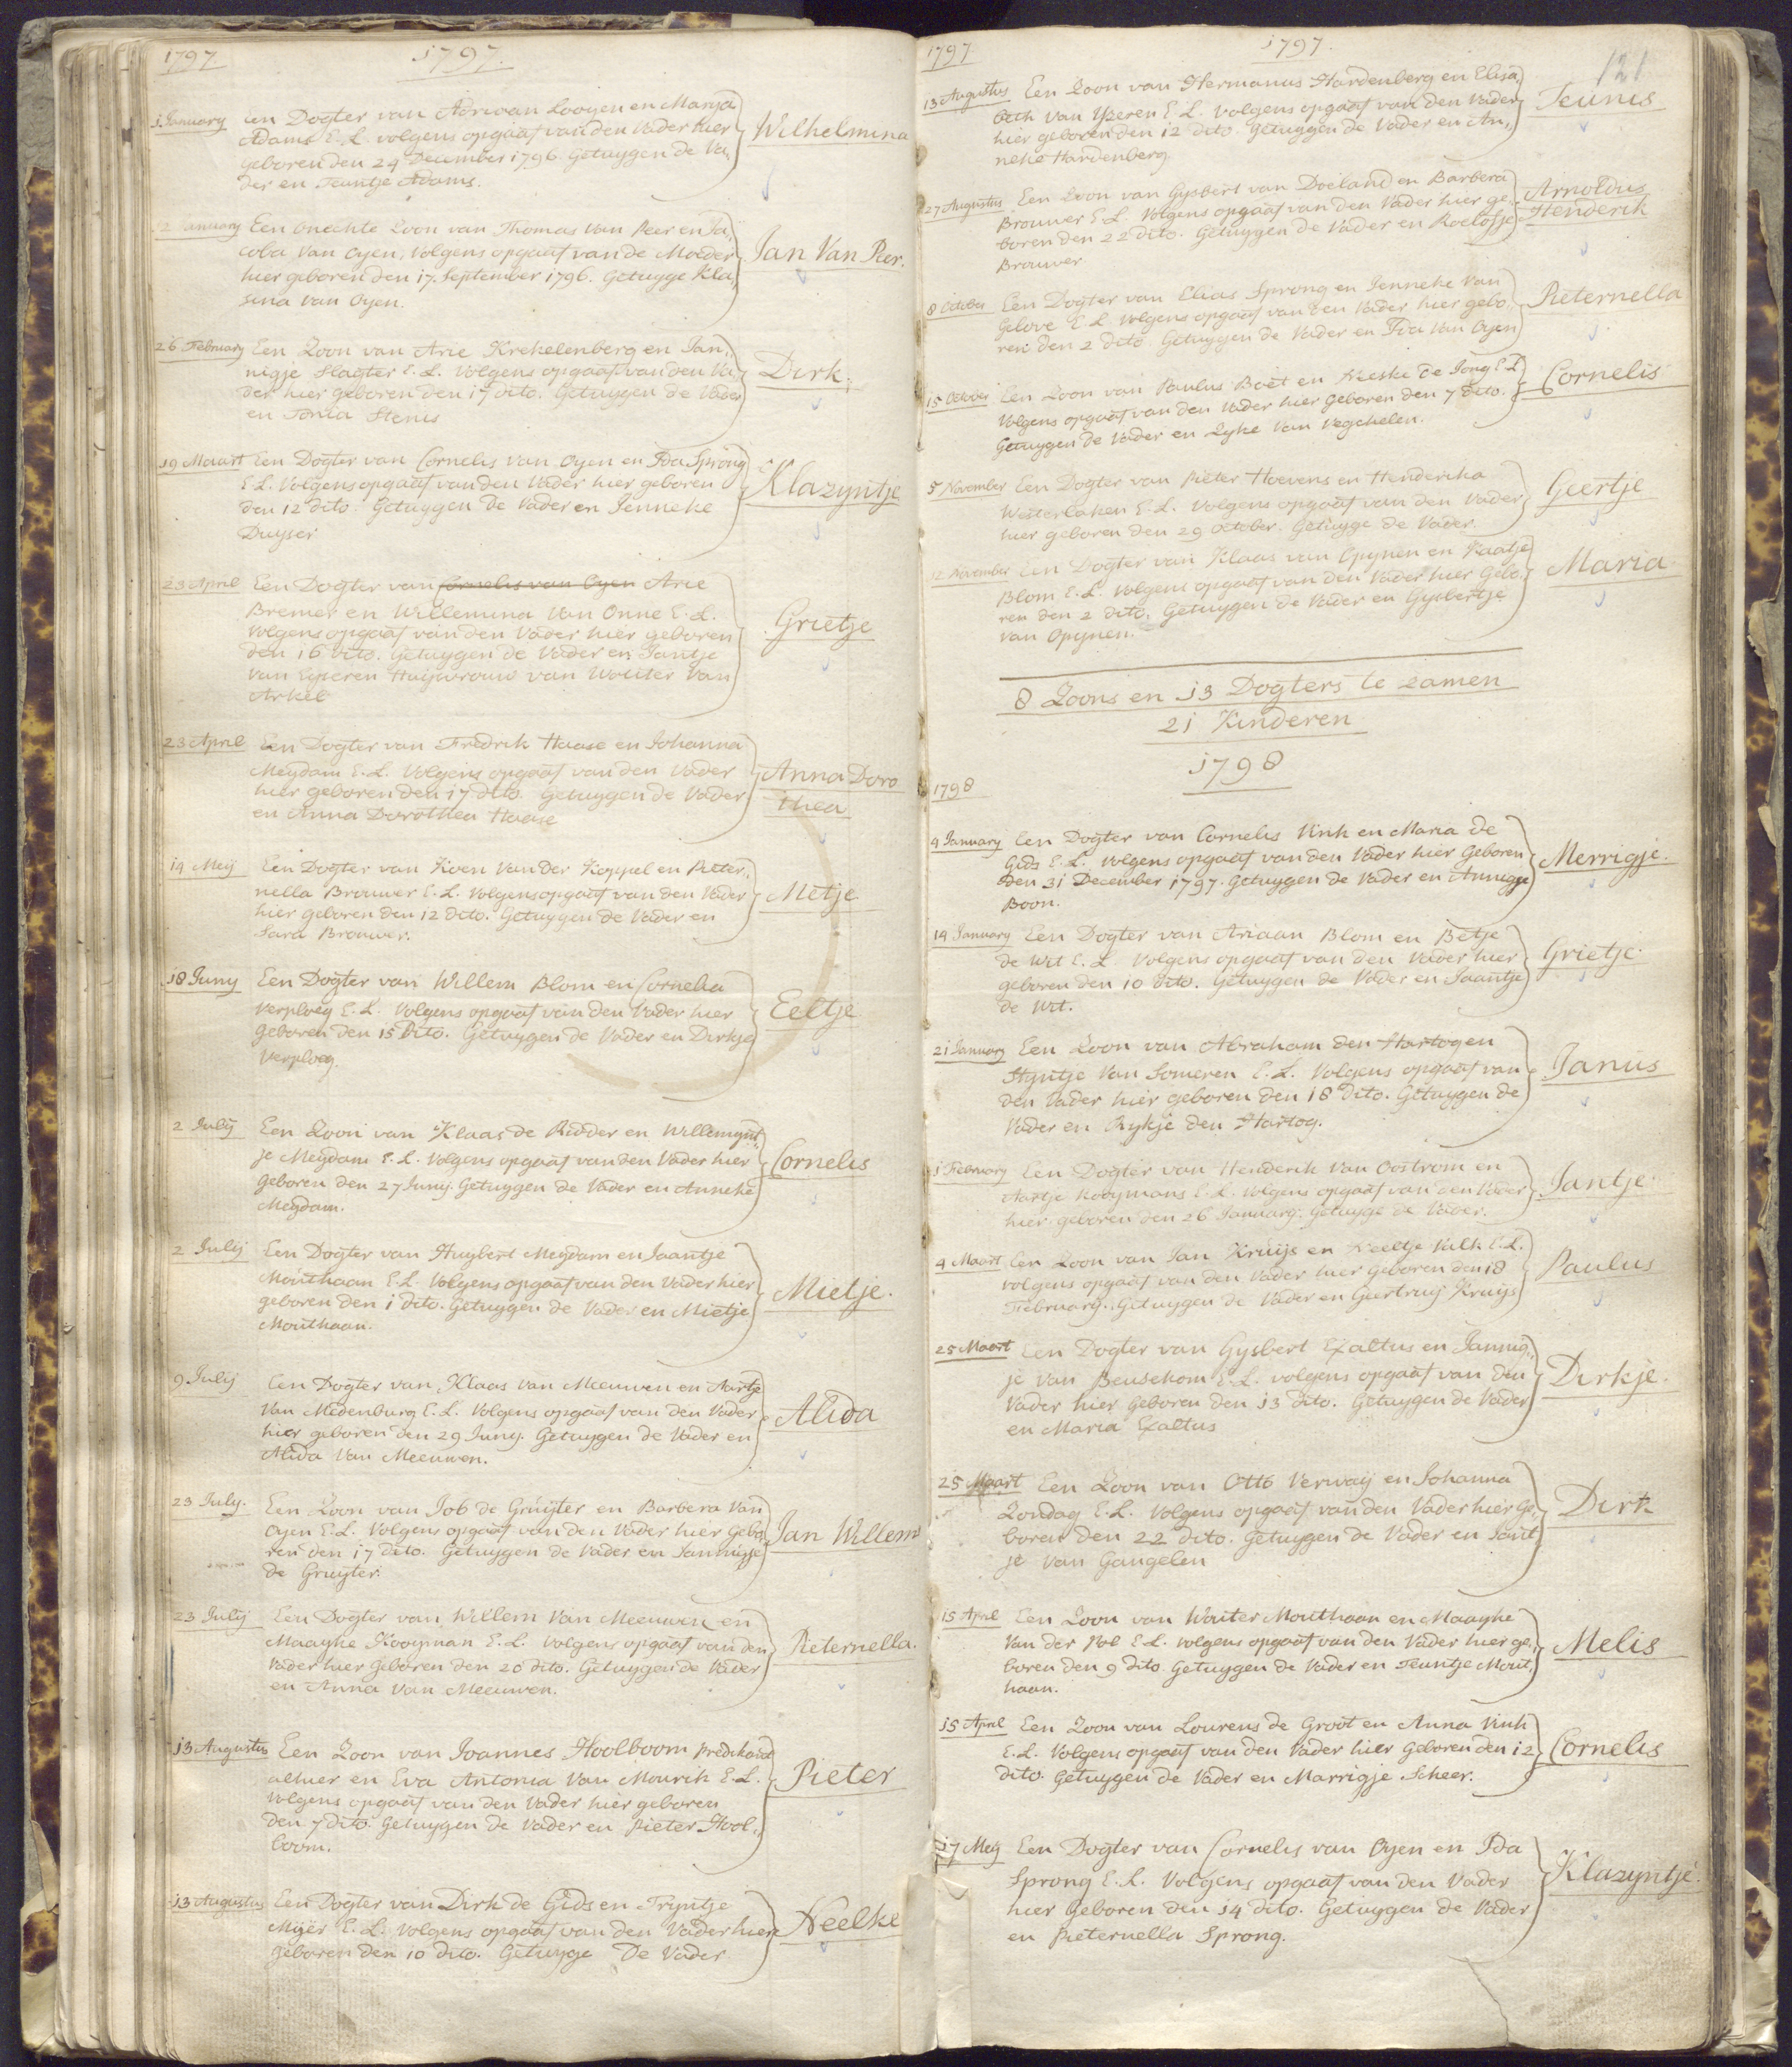 1797
1797.
1 January Een Dogter van Adriaan Looyen en Maria
Adams E. L. volgens opgaaf van den Vader hier
geboren den 24 December 1796. Getuygen de Va„
der en Teuntje Adams.
Wilhelmina
January Een onechte Zoon van Thomas Van Peer en Ja„
coba Van Oyen, Volgens opgaaf van de Moeder
hier geboren den 17. September 1796. Getuyge Kla„
sina van Oyen.
Jan Van Peer.
26 February Een Zoon van Arie Krekelenberg en Jan„
nigje Slagter E. L. Volgens opgaaf van den Va„
der hier geboren den 17 dito. Getuygen de Vader
en Tonia Stenis
Dirk.
19 Maart Een Dogter van Cornelis van Oyen en Ida Sprong
E. L. Volgens opgaaf van den Vader hier geboren
den 12 dito. Getuygen de Vader en Jenneke
Duyser
Klazyntje
23 April Een Dogter van Cornelis van Oyen Arie
Bremer en Willemina Van Onne E. L.
Volgens opgaaf van den Vader hier geboren
den 16 dito. Getuygen de Vader en Jantje
van Eyseren Huijsvrouw van Wouter Van
Arkel
Grietje
23 April Een Dogter van Fredrik Haase en Johanna
Meydam E. L. Volgens opgaaf van den Vader
hier geboren den 17 dito. Getuygen de Vader
en Anna Dorothea Haase
Anna Doro
thea
14 Meij Een Dogter van Koen Van der Koppel en Pieter„
nella Brouwer E. L. Volgens opgaaf van den Vader
hier geboren den 12 dito. Getuygen de Vader en
Sara Brouwer.
Metje
18 Juny Een Dogter van Willem Blom en Cornelia
Verploeg E. L. Volgens opgaaf van den Vader hier
geboren den 15 dito. Getuygen de Vader en Dirkje
Verploeg.
Eeltje
2 Julij Een Zoon van Klaas de Ridder en Willemynt„
je Meydam E. L. Volgens opgaaf van den Vader hier
geboren den 27 Juny. Getuygen de Vader en Anneke
Meydam.
Cornelis
2 Julij Een Dogter van Huybert Meydam en Jaantje
Mouthaan E. L. Volgens opgaaf van den Vader hier
geboren den 1 dito. Getuygen de Vader en Mietje
Mouthaan.
Mietje.
9 Julij Een Dogter van Klaas van Meeuwen en Aartje
Van Medenburg E. L. Volgens opgaaf van den Vader
hier geboren den 29 Juny. Getuygen de Vader en
Alida Van Meeuwen.
Alida
23 July. Een Zoon van Job de Gruyter en Barbera Van
Oyen E. L. Volgens opgaaf van den Vader hier Gebo„
ren den 17 dito. Getuygen de Vader en Jannigje
de Gruyter.
Jan Willem
23 Julij Een Dogter van Willem Van Meeuwen en
Maayke Kooyman E. L. Volgens opgaaf van den
Vader hier geboren den 20 dito. Getuygen de Vader
en Anna Van Meeuwen.
Pieternella.
13 Augustus Een Zoon van Joannes Hoolboom predikant
alhier en Eva Antonia Van Mourik E. L.
Volgens opgaaf van den Vader hier geboren
den 7 dito. Getuygen de Vader en Pieter Hool„
boom.
Pieter
13 Augustus Een Dogter van Dirk de Gids en Tryntje
Mijer E. L. Volgens opgaaf van den Vader hier
geboren den 10 dito. Getuyge De Vader
Neelke
1797
1797.
121
13 Augustus Een Zoon van Hermanus Hardenberg en Elisa„
beth Van Yzeren E. L. Volgens opgaaf van den Vader
hier geboren den 12 dito. Getuygen de Vader en An„
neke Hardenberg.
Teunis
27 Augustus Een Zoon van Gysbert van Doeland en Barbera
Brouwer E. L. Volgens opgaaf van den Vader hier ge„
boren den 22 dito. Getuygen de Vader en Roelofje
Brouwer
Arnoldus
Henderik
8 October Een Dogter van Elias Sprong en Jenneke Van
Gelove E. L. Volgens opgaaf van den Vader hier gebo„
ren den 2 dito. Getuygen de Vader en Ida Van Oyen
Pieternella
15 October Een Zoon van Paulus Boët en Neeske de Jong E. L
Volgens opgaaf van den Vader hier geboren den 7 dito.
Getuygen de Vader en Zyke Van Vegchelen.
Cornelis
5 November Een Dogter van Pieter Hoevens en Hendericka
Westerlaken E. L. Volgens opgaaf van den Vader
hier geboren den 29 October. Getuyge de Vader.
Geertje
12 November Een Dogter van Klaas van Opynen en Kaatje
Blom E. L. Volgens opgaaf van den Vader hier Gebo„
ren den 2 dito. Getuygen de Vader en Gysbertje
van Opynen.
Maria
8 Zoons en 13 Dogters te zamen
21 Kinderen
1798
1798
4 January Een Dogter van Cornelis Vink en Maria de
Gids E. L. Volgens opgaaf van den Vader hier Geboren
den 31 December 1797. Getuygen de Vader en Annigje
Boon.
Merrigje.
14 January Een Dogter van Ariaan Blom en Betje
de Wit E. L Volgens opgaaf van den Vader hier
geboren den 10 dito. Getuygen de Vader en Jaantje
de Wit.
Grietje.
21 January Een Zoon van Abraham den Hartog en
Styntje Van Someren E. L. Volgens opgaaf van
den Vader hier geboren den 18 dito. Getuygen de
Vader en Rykje den Hartog.
Janus
1 February Een Dogter van Henderik Van Oostrom en
Aartje Kooymans E. L. Volgens opgaaf van den Vader
hier geboren den 26 January. Getuyge de Vader.
Jantje
4 Maart Een Zoon van Jan Kruijs en Neeltje Valk E. L.
volgens opgaaf van den Vader hier geboren den 18
February. Getuygen de Vader en Geertruij Kruijs
Paulus
25 Maart Een Dogter van Gysbert Exaltus en Jannig„
je Van Beusekom E. L. Volgens opgaaf van den
Vader hier geboren den 13 dito. Getuygen de Vader
en Maria Exaltus
Dirkje.
25 Maart Een Zoon van Otto Verwaij en Johanna
Zondag E. L. Volgens opgaaf van den Vader hier Ge„
boren den 22 dito. Getuygen de Vader en Jant
je Van Gangelen
Dirk
15 April Een Zoon van Wouter Mouthaan en Maayke
Van der Pol E. L. Volgens opgaaf van den Vader hier ge„
boren den 9 dito Getuygen de Vader en Teuntje Mout„
haan.
Melis
15 April Een Zoon van Lourens de Groot en Anna Vink
E. L. Volgens opgaaf van den Vader hier geboren den 12
dito. Getuygen de Vader en Marrigje Scheer.
Cornelis
17 Meij Een Dogter van Cornelis van Oyen en Ida
Sprong E. L. Volgens opgaaf van den Vader
hier Geboren den 14 dito. Getuygen de Vader
en Pieternella Sprong.
Klazyntje.